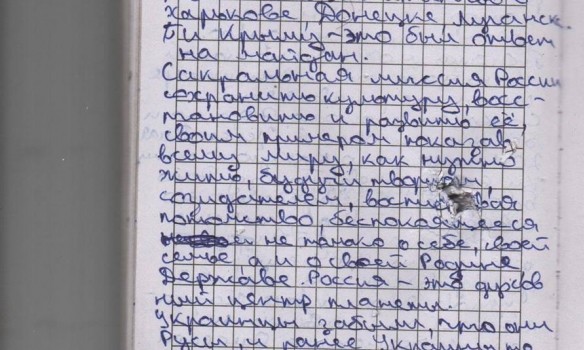 Харькове, Донецке, Луганск
е и Крыму - это был ответ
на майдан.
Сакральная миссия России
сохранить культуру, восс-
тановить и развить её,
своим примером показав
всему миру, как нужно
жить, будучи творцом,
создателем,
потомство, беспокоящееся
не только о себе, своей
семье а и о своей Родине
Державе. Россия - это духов
ный центр планеты.
Украинцы забыли, что они
Русы, и ранее Украины то